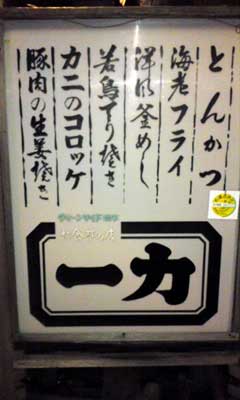 とんかつ
海老フライ
洋風釜めし
若鳥てり焼き
カニのコロッケ
豚肉の生姜焼き
一力